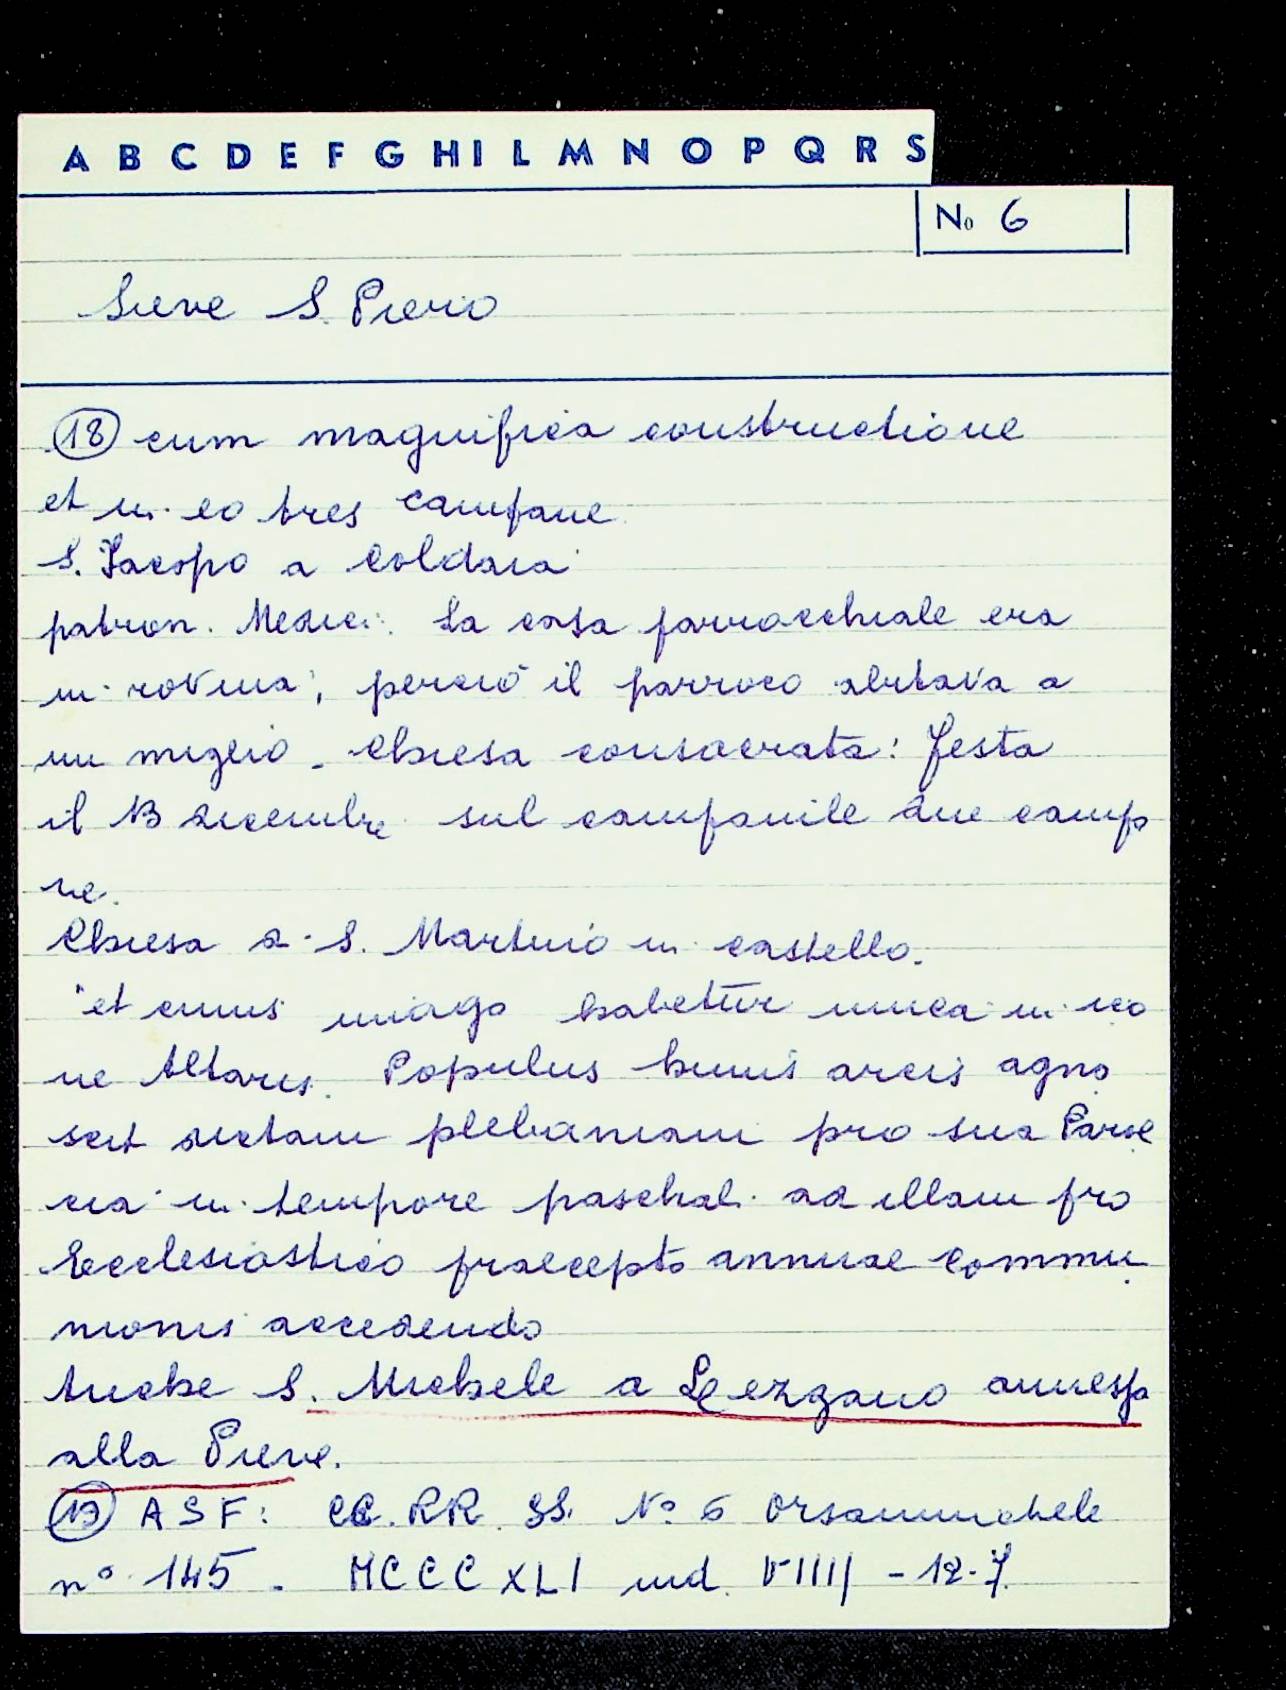 A B C D E F G H I L M N O P Q R S
No 6
Sieve S. Piero
(18) cum magnifica constructione
et in eo tres campane
S. Jacopo a Coldaia
patron. Medici. La casa parrocchiale era
in rovina, perciò il parroco abitava a
un miglio. Chiesa consacrata: festa
il 13 dicembre sul campanile due campa
ne.
Chiesa di S. Martino in castello.
"et cuius imago habetur unica in ico
ne Altaris. Populus huius arcis agno
scit dictam plebaniam pro sua Paroe
cia in tempore paschal. ad illam pro
Ecclesiastico praecepto annuae commu
nionis accedendo
Anche S. Michele a Lezzano annessa
alla Pieve.
(19) ASF: CC. RR. SS. No 6 Orsanmichele
no 145 - MCCCXLI ind. VIIII - 12-7